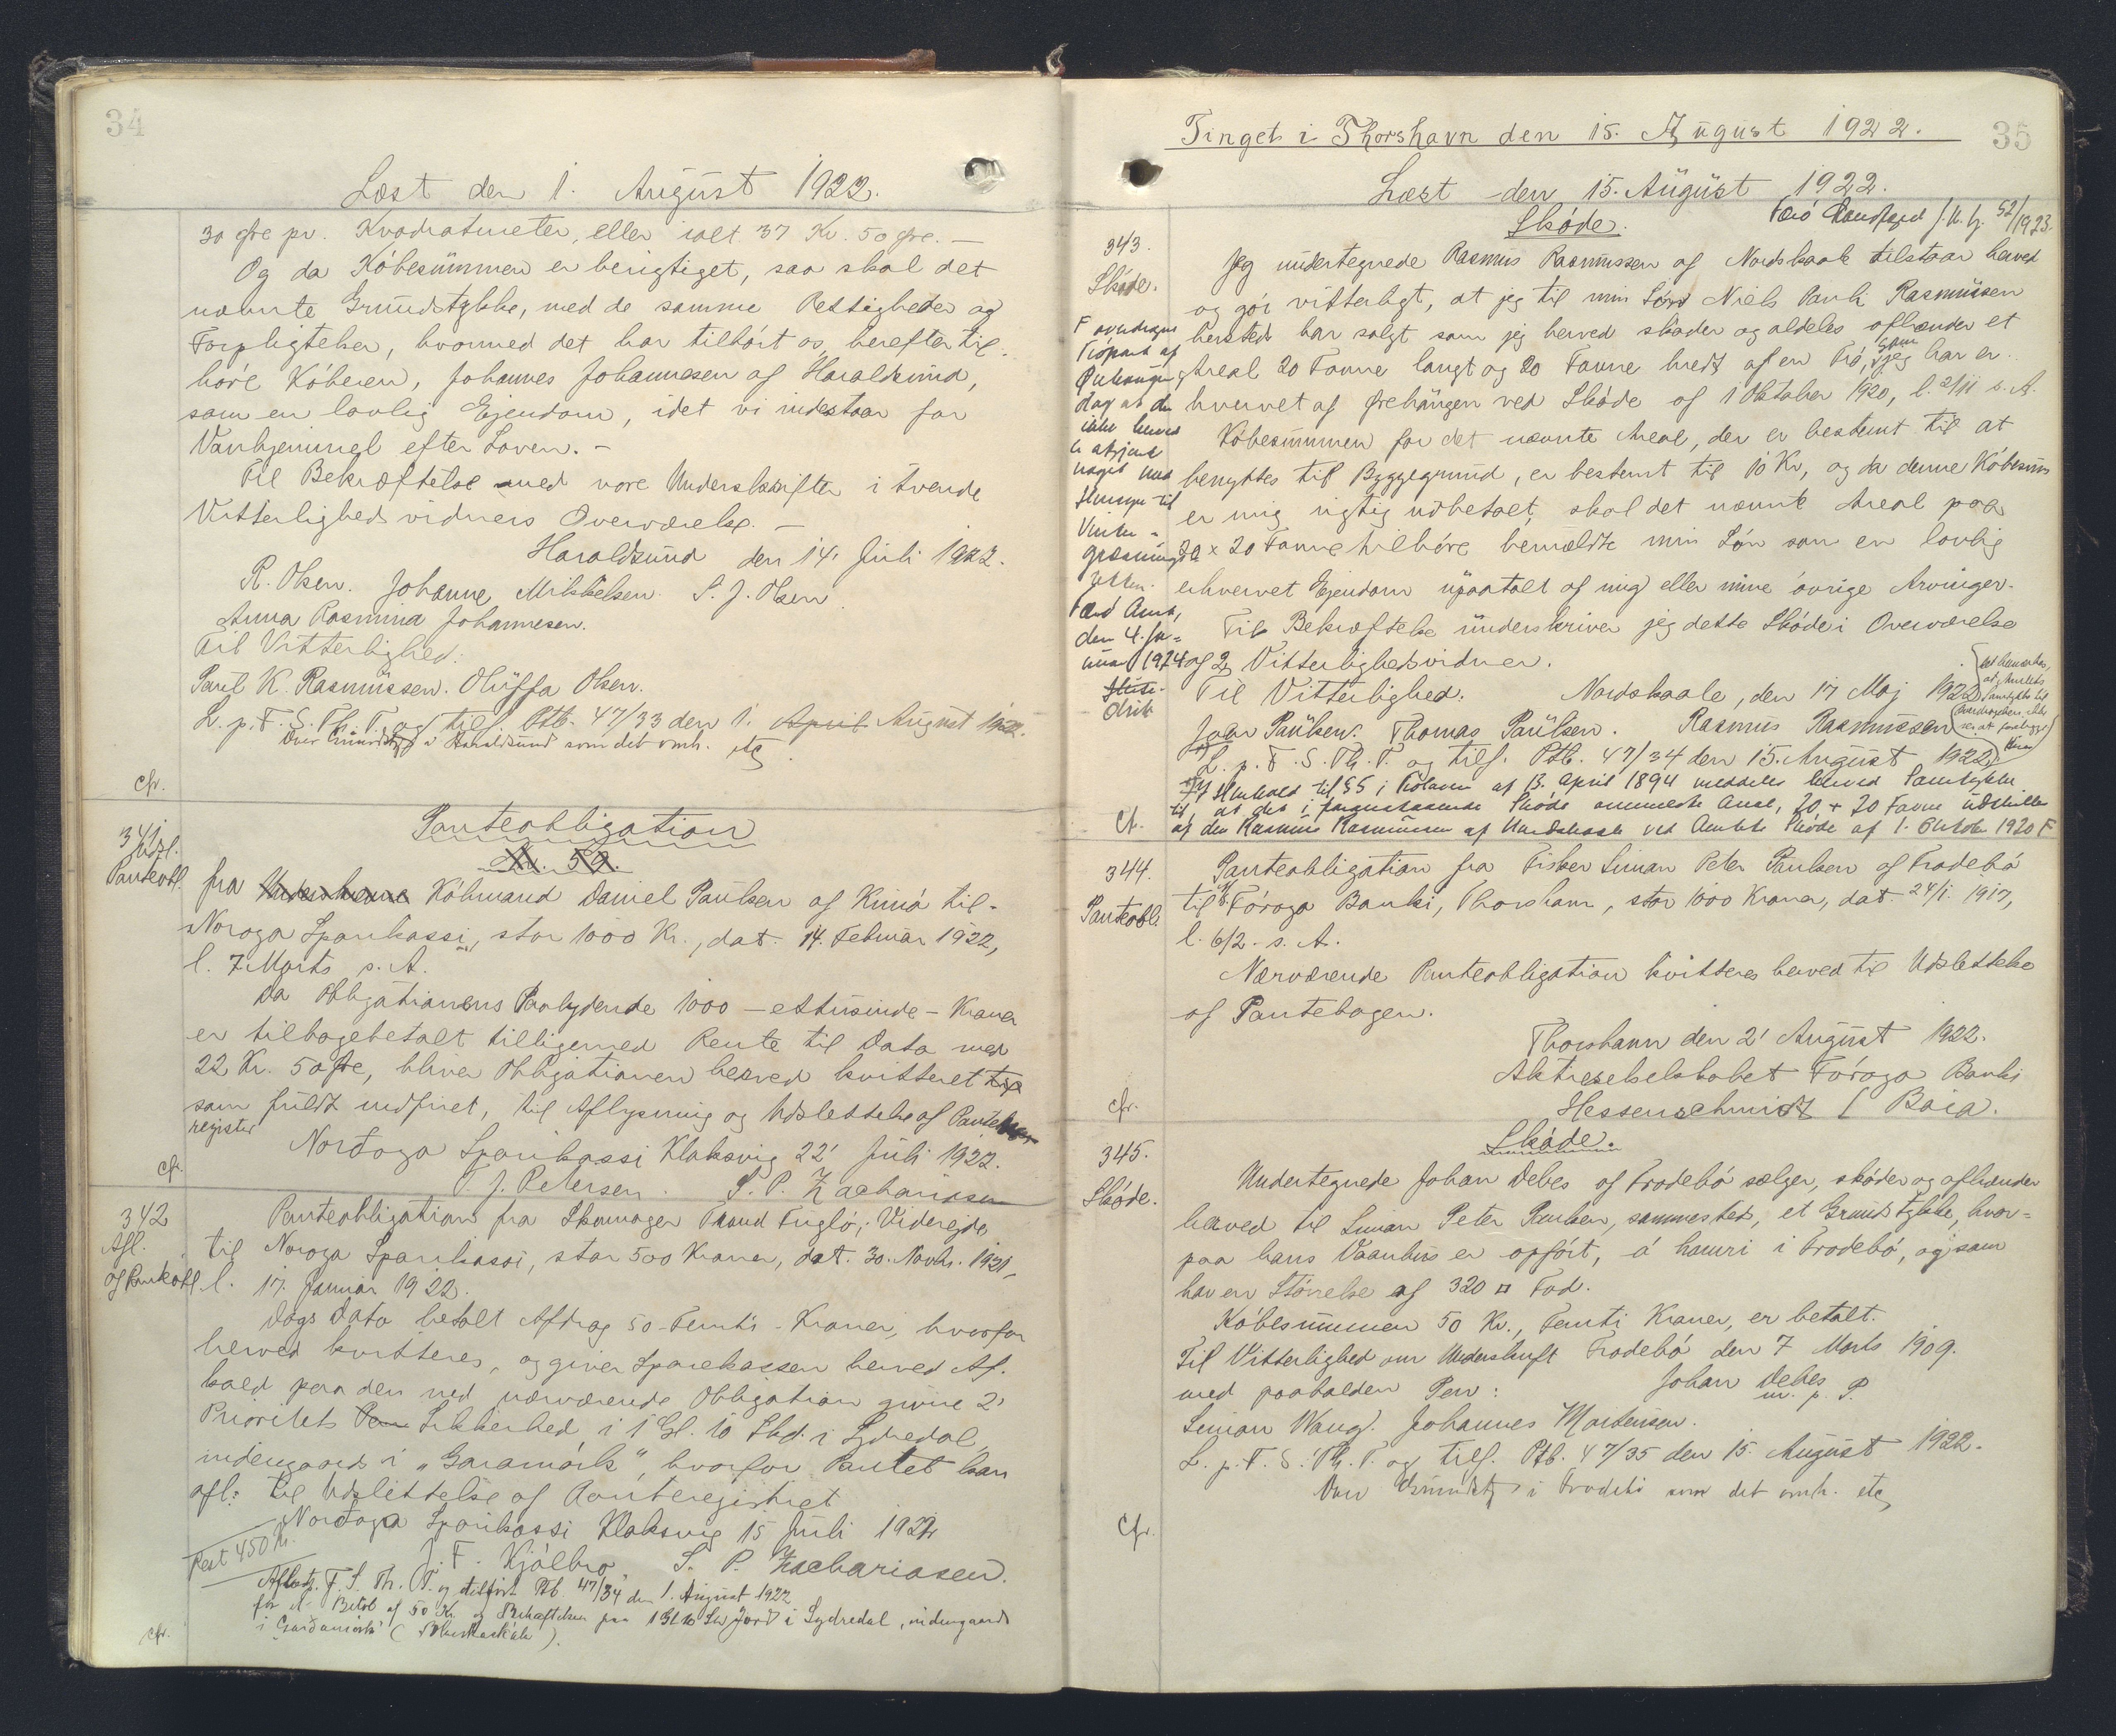 34
Læst den 1. August 1922.
30 Øre pr. Kvadratmeter, eller ialt 37 Kr. 50 Øre. —
Og da Købesummen er berigtiget, saa skal det
nævnte Grundstykke, med de samme Rettigheder og
Forpligtelser, hvormed det har tilhört os, herefter til-
höre Köberen, Johannes Johannesen af Haraldsund,
som en lovlig Ejendom, idet vi indestaar for
Vanhjemmel efter Loven. -
Til Bekræftelse med vore Underskrifter i tvende
Vitterlighedsvidners Overværelse. —
Haraldsund den 14' Juli 1922.
R. Olsen. Johanne Mikkelsen. S. J. Olsen.
Anna Rasmina Johannesen.
Til Vitterlighed:
Poul K. Rasmussen. Oluffa Olsen.
L. p. F. S. Th. T. og tilf. Ptb. 47/33 den 1. April August 1922.
Over Grundstk i Haraldsund som det omh. etc
cfr.
341
Udsl.
Panteobl.
Panteobligation
No. 59.
fra Købmand Daniel Paulsen af Kunö til
Noroya Sparikassi, stor 1000 Kr., dat. 14. Februar 1922,
l. 7 Marts s. A.
Da Obligationens Paalydende 1000 - ettusinde - Kroner
er tilbagebetalt tilligemed Rente til Dato med
22 Kr. 50 Øre, bliver Obligationen herved kvitteret til
som fuldt indfriet, til Aflysning og Udslettelse af Pante
register
Norðoya Sparikassi Klaksvig 22' Juli 1922.
T. J. Petersen. S. P. Zachariasen
cfr.
342
Afl.
af Panteobl.
Panteobligation fra Skomager Traand Fuglö, Viderejde
til Noroya Sparikassi, stor 500 Kroner, dat. 30. Novbr. 1921,
l. 17. Januar 1922.
Dags Dato betalt Afdrag 50 - Femti - Kroner, hvorfor
herved kvitteres, og giver Sparekassen herved Af-
kald paa den ved nærværende Obligation givne 2'
Prioritets Pan Sikkerhed i 1 Gl. 10 Skd. i Sydredal
indengaards i "Garamörk", hvorfor Pantet kan
afl: til Udslettelse af Panteregistret
Norðoya Sparikassi Klaksvig 15 Juli 1922
Rest 450 Kr.
J. F. Kjölbro. S. P. Zachariasen.
Aflæst p. F. S. Th. T. og tilfört Ptb. 47/34 den 1. August 1922
for et Belöb af 50 Kr. og Behæftelsen paa 1 Gl 10 Sk Jord i Sydredal, indengaards
i Garðamörk
cfr.
35
Tinget i Thorshavn den 15. August 1922.
Læst den 15. August 1922.
52/1923
343.
Sköde.
Sköde.
Jeg undertegnede Rasmus Rasmussen af Nordskaale tilstaar herved
og gör vitterligt, at jeg til min Sön Niels Pauli Rasmussen
hersteds har solgt som jeg herved skøder og aldeles afhænder et
Areal 20 Favne langt og 20 Favne bredt af en Trö, som jeg har er-
hvervet af Ørehangen ved Sköde af 1 Oktober 1920, l. 2/11 s. A.
Köbesummen for det nævnte Areal, der er bestemt til at
benyttes til Byggegrund, er bestemt til 10 Kr, og da denne Købesum
er mig rigtig udbetalt, skal det nævnte Areal paa
20 x 20 Favne tilhöre bemældte min Sön som en lovlig
erhvervet Ejendom upaatalt af mig eller mine övrige Arvinger.
Til Bekræftelse underskriver jeg dette Sköde i Overværelse
af 2 Vitterlighedsvidner.
Til Vitterlighed: Nordskaale, den 17 Maj 1922
Joen Paulsen. Thomas Paulsen. Rasmus Rasmussen
L. p. F. S. Th. T. og tilf. Ptb. 47/34 den 15. August 1922
I Henhold til § 5 i Trölaven af 13. April 1894 meddeles herved Samtykke
til, at det i foranstaaende Sköde ommeldte Areal, 20 x 20 Favne udskilles
af den Rasmus Rasmussen af Nordskaale ved Amtets Sköde af 1. Oktober 1920 F
F overdragne
Tröpart af
Ørehangen,
dog at der
ikke herved
er afgjort
noget med
Hensyn til
Vinter-
græsnings-
retten.
Færö Amt,
den 4. Ja-
nuar 1924
cf.
344.
Panteobl.
Panteobligation fra Fisker Simon Peter Paulsen af Trodebö
til A/S Föroya Banki, Thorshavn, stor 1000 Kroner, dat. 24/1 1917,
l. 6/2 - s. A.
Nærværende Panteobligation kvitteres herved til Udslettelse
af Pantebogen.
Thorshavn den 2' August 1922.
Aktieselskabet Föroya Banki
Hessenschmidt / Baia.
cfr.
345.
Sköde.
Sköde.
Undertegnede Johan Debes af Trodebö sælger, sköder og afhænder
herved til Simon Peter Paulsen, sammesteds, et Grundstykke, hvor-
paa hans Vaanhus er opfört, á hamri i Trodebö, og som
har en Störrelse af 320 □ Fod.
Köbesummen 50 Kr., Femti Kroner, er betalt.
Til Vitterlighed om Underskrift Trodebö den 7 Marts 1909.
med paaholden Pen: Johan Debes
m. p. P.
Simon Wang. Johannes Mortensen.
L. p. F. S. Th. T. og tilf. Ptb. 47/35 den 15. August 1922.
Over Grundstk i Trodebö som det omh. etc
cfr.